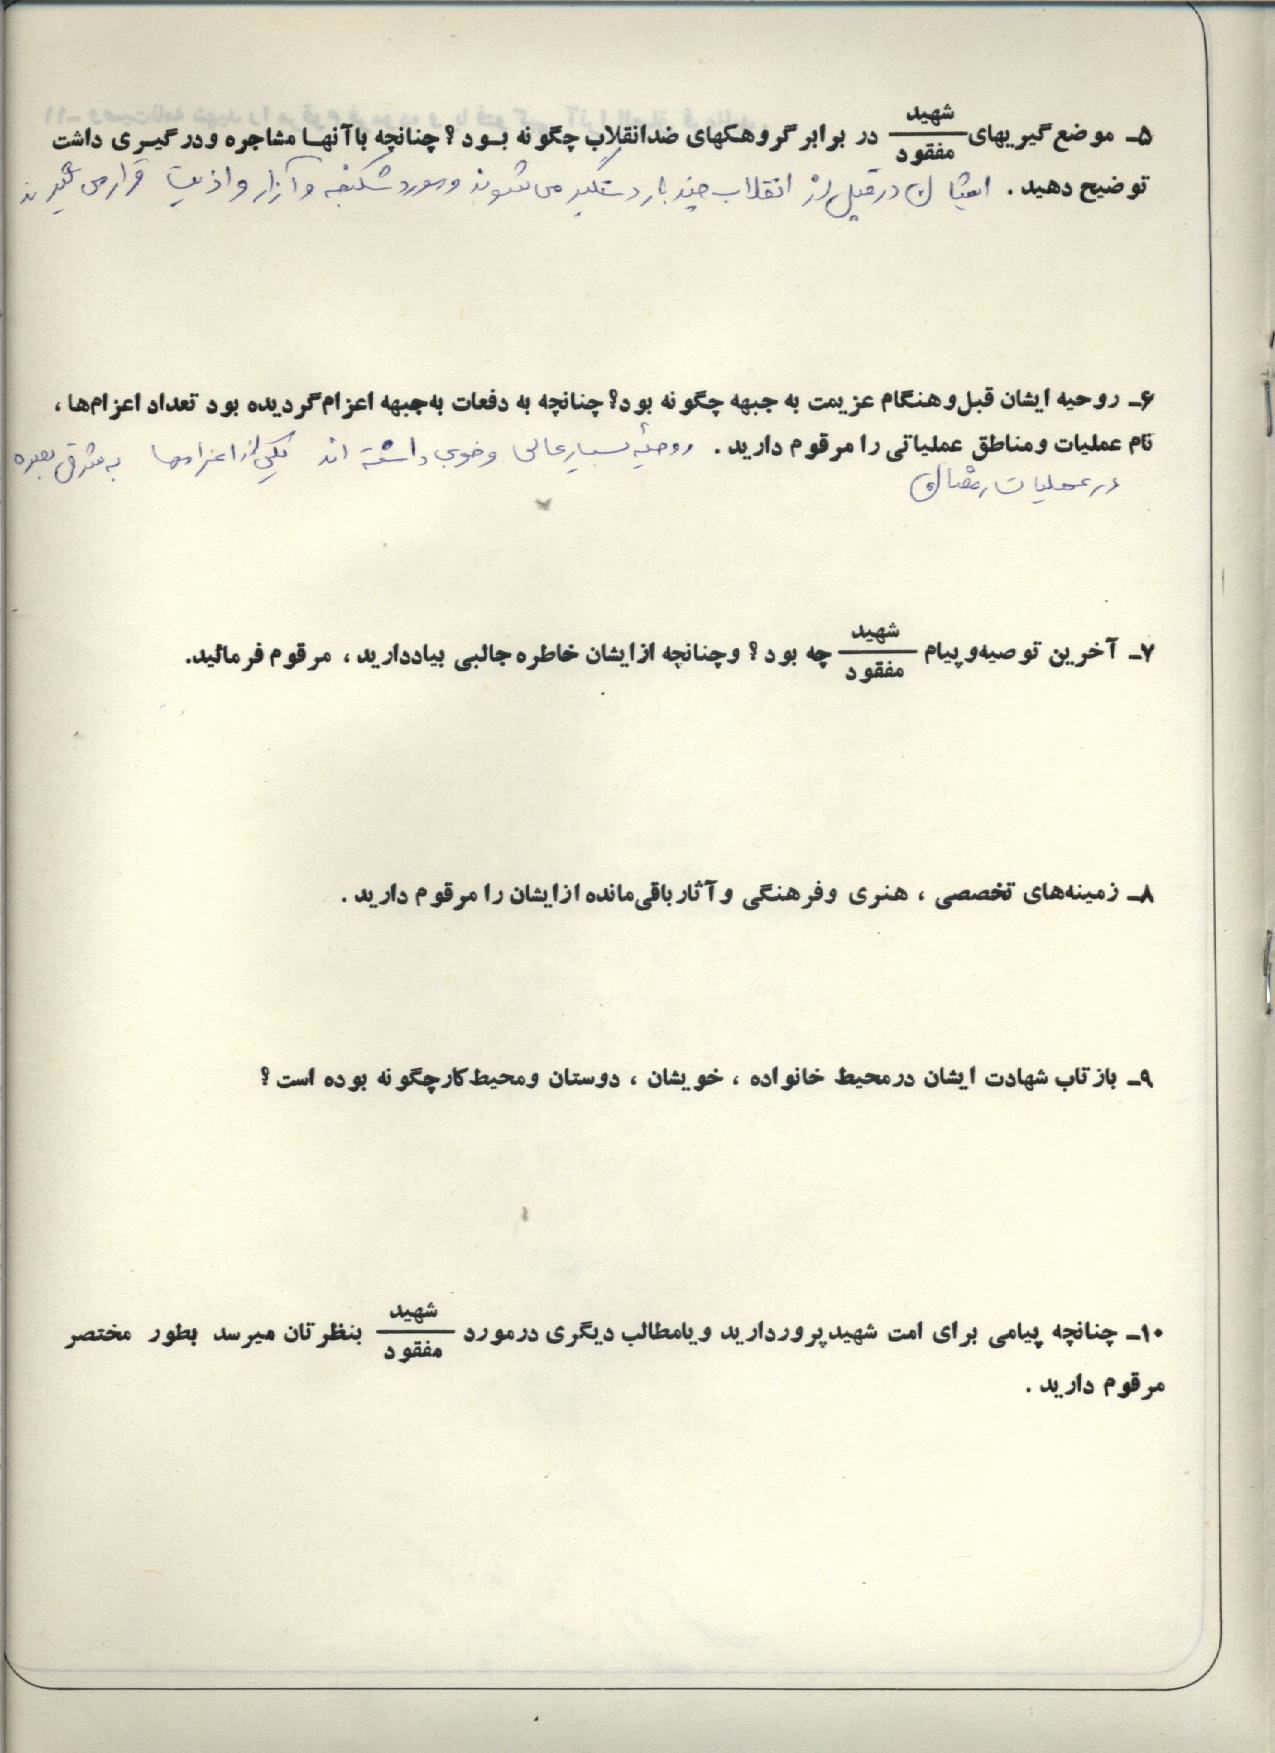 ۵ـ موضع‌گیریهای شهید/مفقود در برابر گروهکهای ضدانقلاب چگونه بـود؟ چنانچه باآنهـا مشاجره ودرگیـری داشت
توضیح دهید. ایشان در قبل از انقلاب چند بار دستگیر می‌شوند و مورد شکنجه و آزار و اذیت قرار می‌گیرند
۶ـ روحیه ایشان قبل‌وهنگام عزیمت به جبهه چگونه بود؟ چنانچه به دفعات به‌جبهه اعزام‌گردیده بود تعداد اعزام‌ها،
نام عملیات ومناطق عملیاتی را مرقوم دارید. روحیهٔ بسیار عالی و خوبی داشته اند یکی از اعزامها به شرق بصره
در عملیات رمضان
۷ـ آخرین توصیه‌وپیام شهید/مفقود چه بود؟ وچنانچه ازایشان خاطره‌جالبی بیاددارید، مرقوم فرمائید.
۸ـ زمینه‌های تخصصی، هنری وفرهنگی وآثارباقی‌مانده ازایشان را مرقوم دارید.
۹ـ بازتاب شهادت ایشان درمحیط خانواده، خویشان، دوستان ومحیط‌کارچگونه بوده است؟
۱۰ـ چنانچه پیامی برای امت شهیدپروردارید ویامطالب دیگری درمورد شهید/مفقود بنظرتان میرسد بطور مختصر
مرقوم دارید.